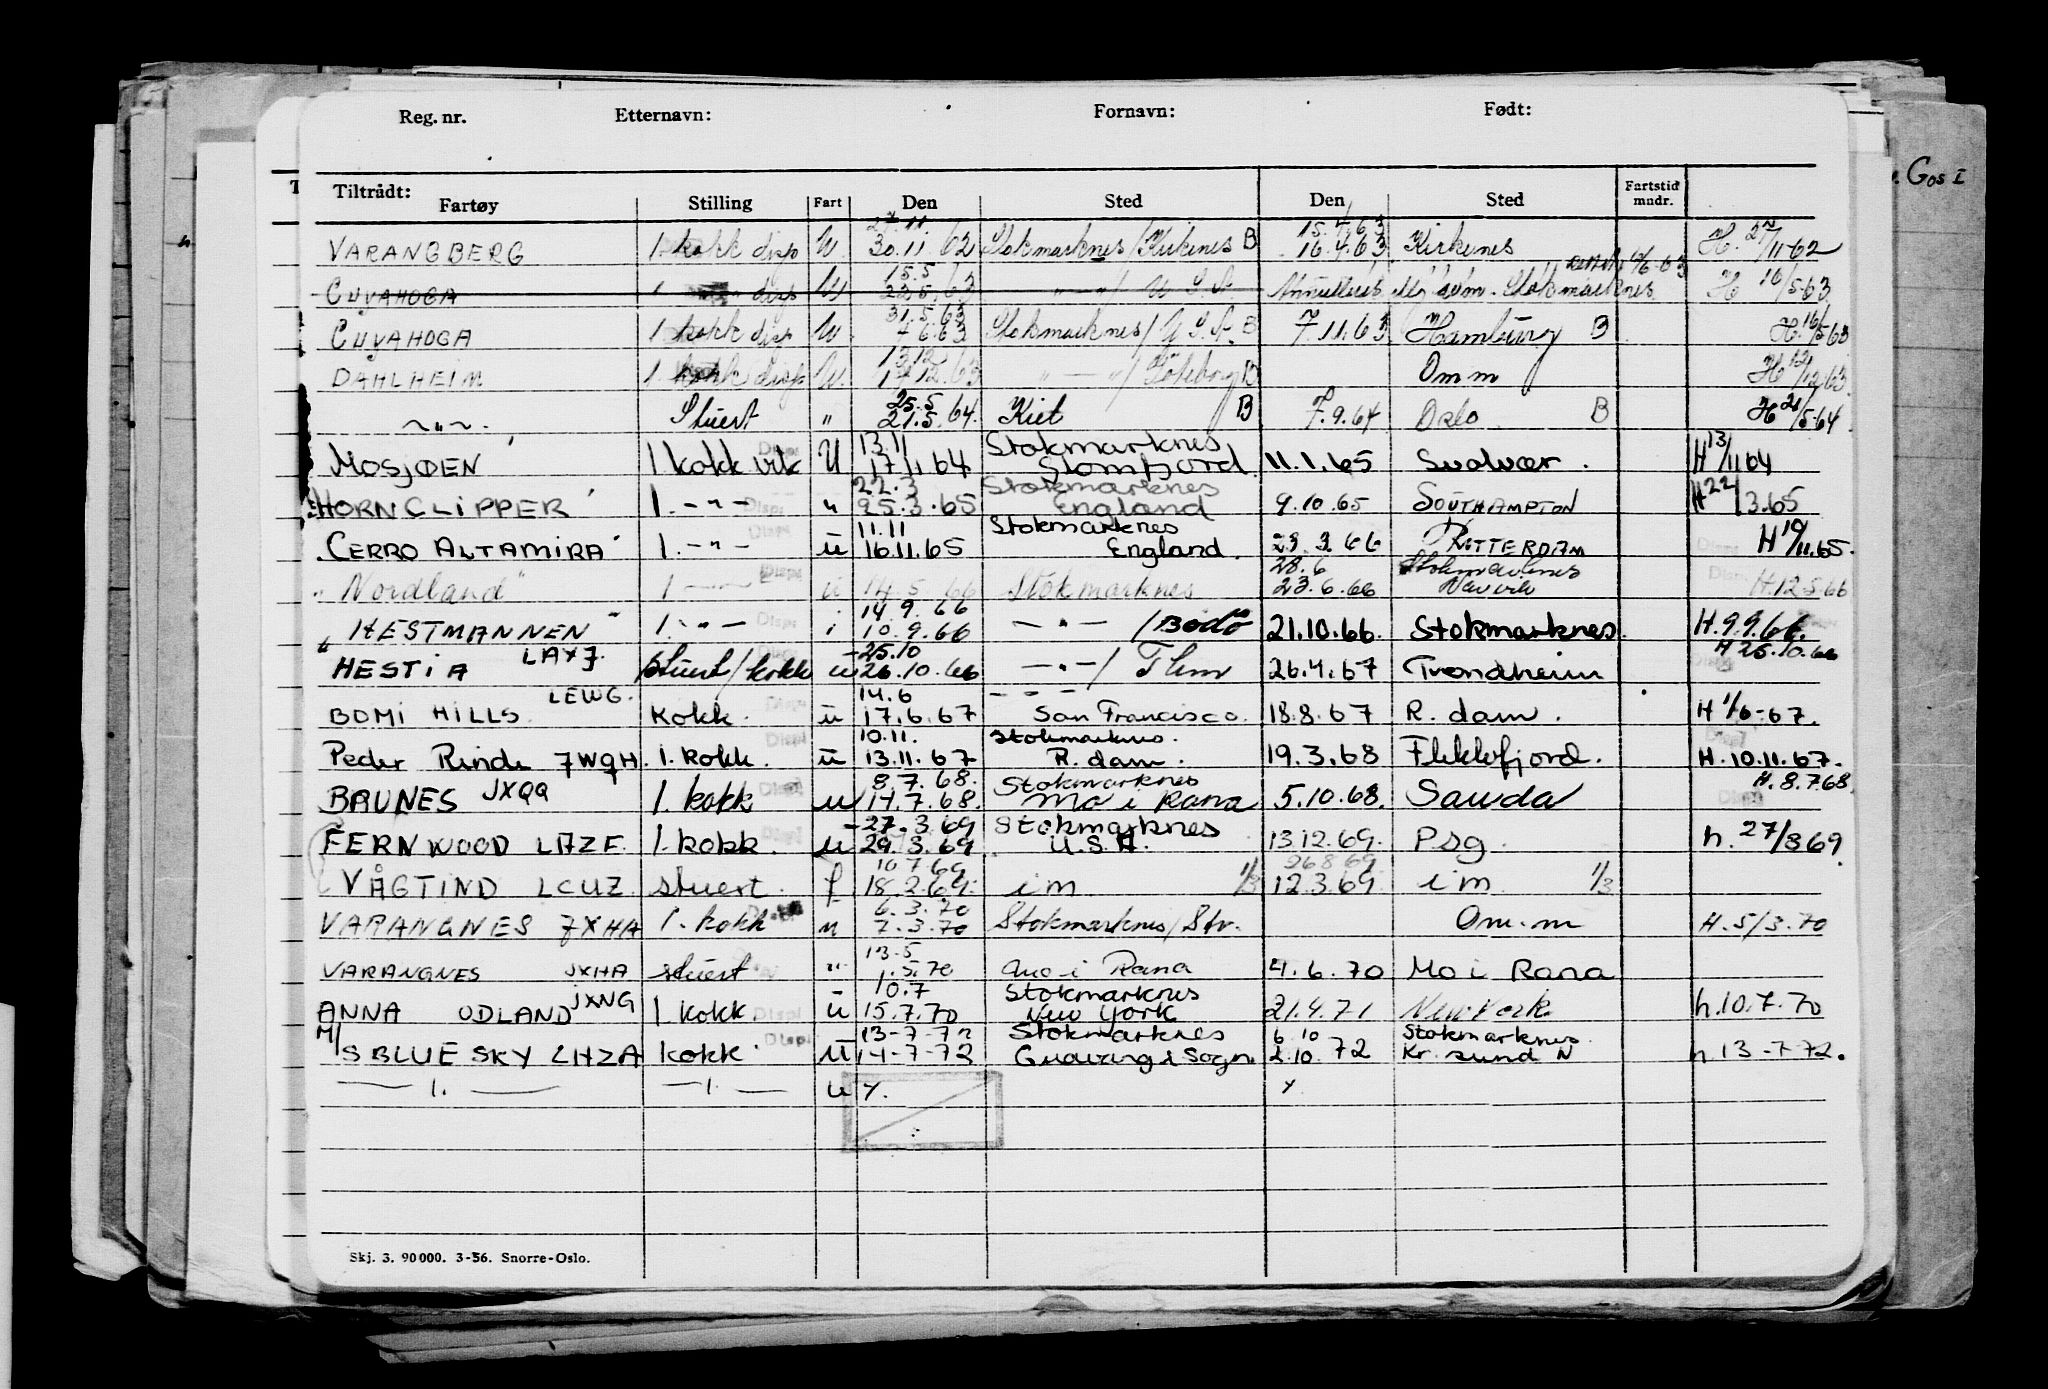 Reg. nr. Etternavn: Fornavn: Født:
Tiltrådt:
Fartøy Stilling Fart Den Sted Den Sted Fartstid mndr.
27.11. 15.4.63
VARANGBERG 1. kokk disp U 30.11.62 Stokmarknes/Kirkenes B 16.4.63 Kirkenes H. 27/11-62
15.5
CUYAHOGA " disp U 22.5.63 " — " / U S A Annullert Stokmarknes H 16/5-63
31.5.63
CUYAHOGA 1 kokk disp U 7 6.63 Stokmarknes/ U S A. B 7.11.63 Hamburg B H. 16/5-63
13.12
DAHLHEIM 1. kokk disp U. 12.63 " — " / Göteborg B Omm H 12/12.63
25.5
~ " ~ . Stuert " 21.5.64. Kiel B 7.9.64 Oslo B H 21/5.64
13.11 Stokmarknes
MOSJØEN 1 kokk vik U 17.11.64 Glomfjord 11.1.65 Svolvær. H 13/11 64
22.3 Stokmarknes
HORN CLIPPER 1. - " - " 25.3.65 England 9.10.65 SOUTHAMPTON H 22/3.65
11.11 Stokmarknes
"CERRO ALTAMIRA" 1. - " - u 16.11.65 England. 23.3.66 ROTTERDAM H 10/11.65.
28.6 Stokmarknes
"Nordland" 1 - " - u 14.5.66 Stokmarknes 23.6.66 H.12.5.66
14.9.66
"HESTMANNEN" 1. - " - i 10.9.66 — " — / Bodö 21.10.66. Stokmarknes. H.9.9.66.
LAXJ. 25.10 H 25.10.66
HESTIA Stuert/kokk u 26.10.66 — " — / Thm 26.4.67 Trondheim
LEWG. 14.6 - - - -
BOMI HILLS Kokk. u 17.6.67 San Francisco. 18.8.67 R. dam. H 1/6-67.
10.11. Stokmarknes.
Peder Rinde JWQH. 1. kokk. u 13.11.67 R. dam. 19.3.68 Flekkefjord. H. 10.11.67.
JXQQ 8.7.68. Stokmarknes H. 8.7.68.
BRUNES 1. kokk u 14.7.68. Mo i Rana 5.10.68. Sauda
27.3.69 Stokmarknes
FERNWOOD LAZE. 1. kokk. u 29.3.69 U.S.A. 13.12.69. Psg. h. 27/3 69.
10.7.69 26 8 69
VÅGTIND LCUZ. stuert. f 18.2.69. i m 1/3 12.3.69 i m 1/3
6.3.70
VARANGNES JXHA 1. kokk u 7.3.70 Stokmarknes/Stv. Om.m H. 5/3.70
13.5
VARANGNES JXHA stuert " 1.5.70 Mo i Rana 4.6.70 Mo i Rana
JXNG 10.7 Stokmarknes
ANNA ODLAND 1. kokk. u 15.7.70 New York 21.4.71 New York. h.10.7.70
M/ 13-7-72 Stokmarknes 6.10 Stokmarknes.
S BLUE SKY LHZA kokk u 14-7-72 i Sogn. 2.10.72 Kr. sund N h 13-7-72.
— 1. — — 1. — u
Skj. 3. 90 000. 3-56. Snorre-Oslo.
Gos I